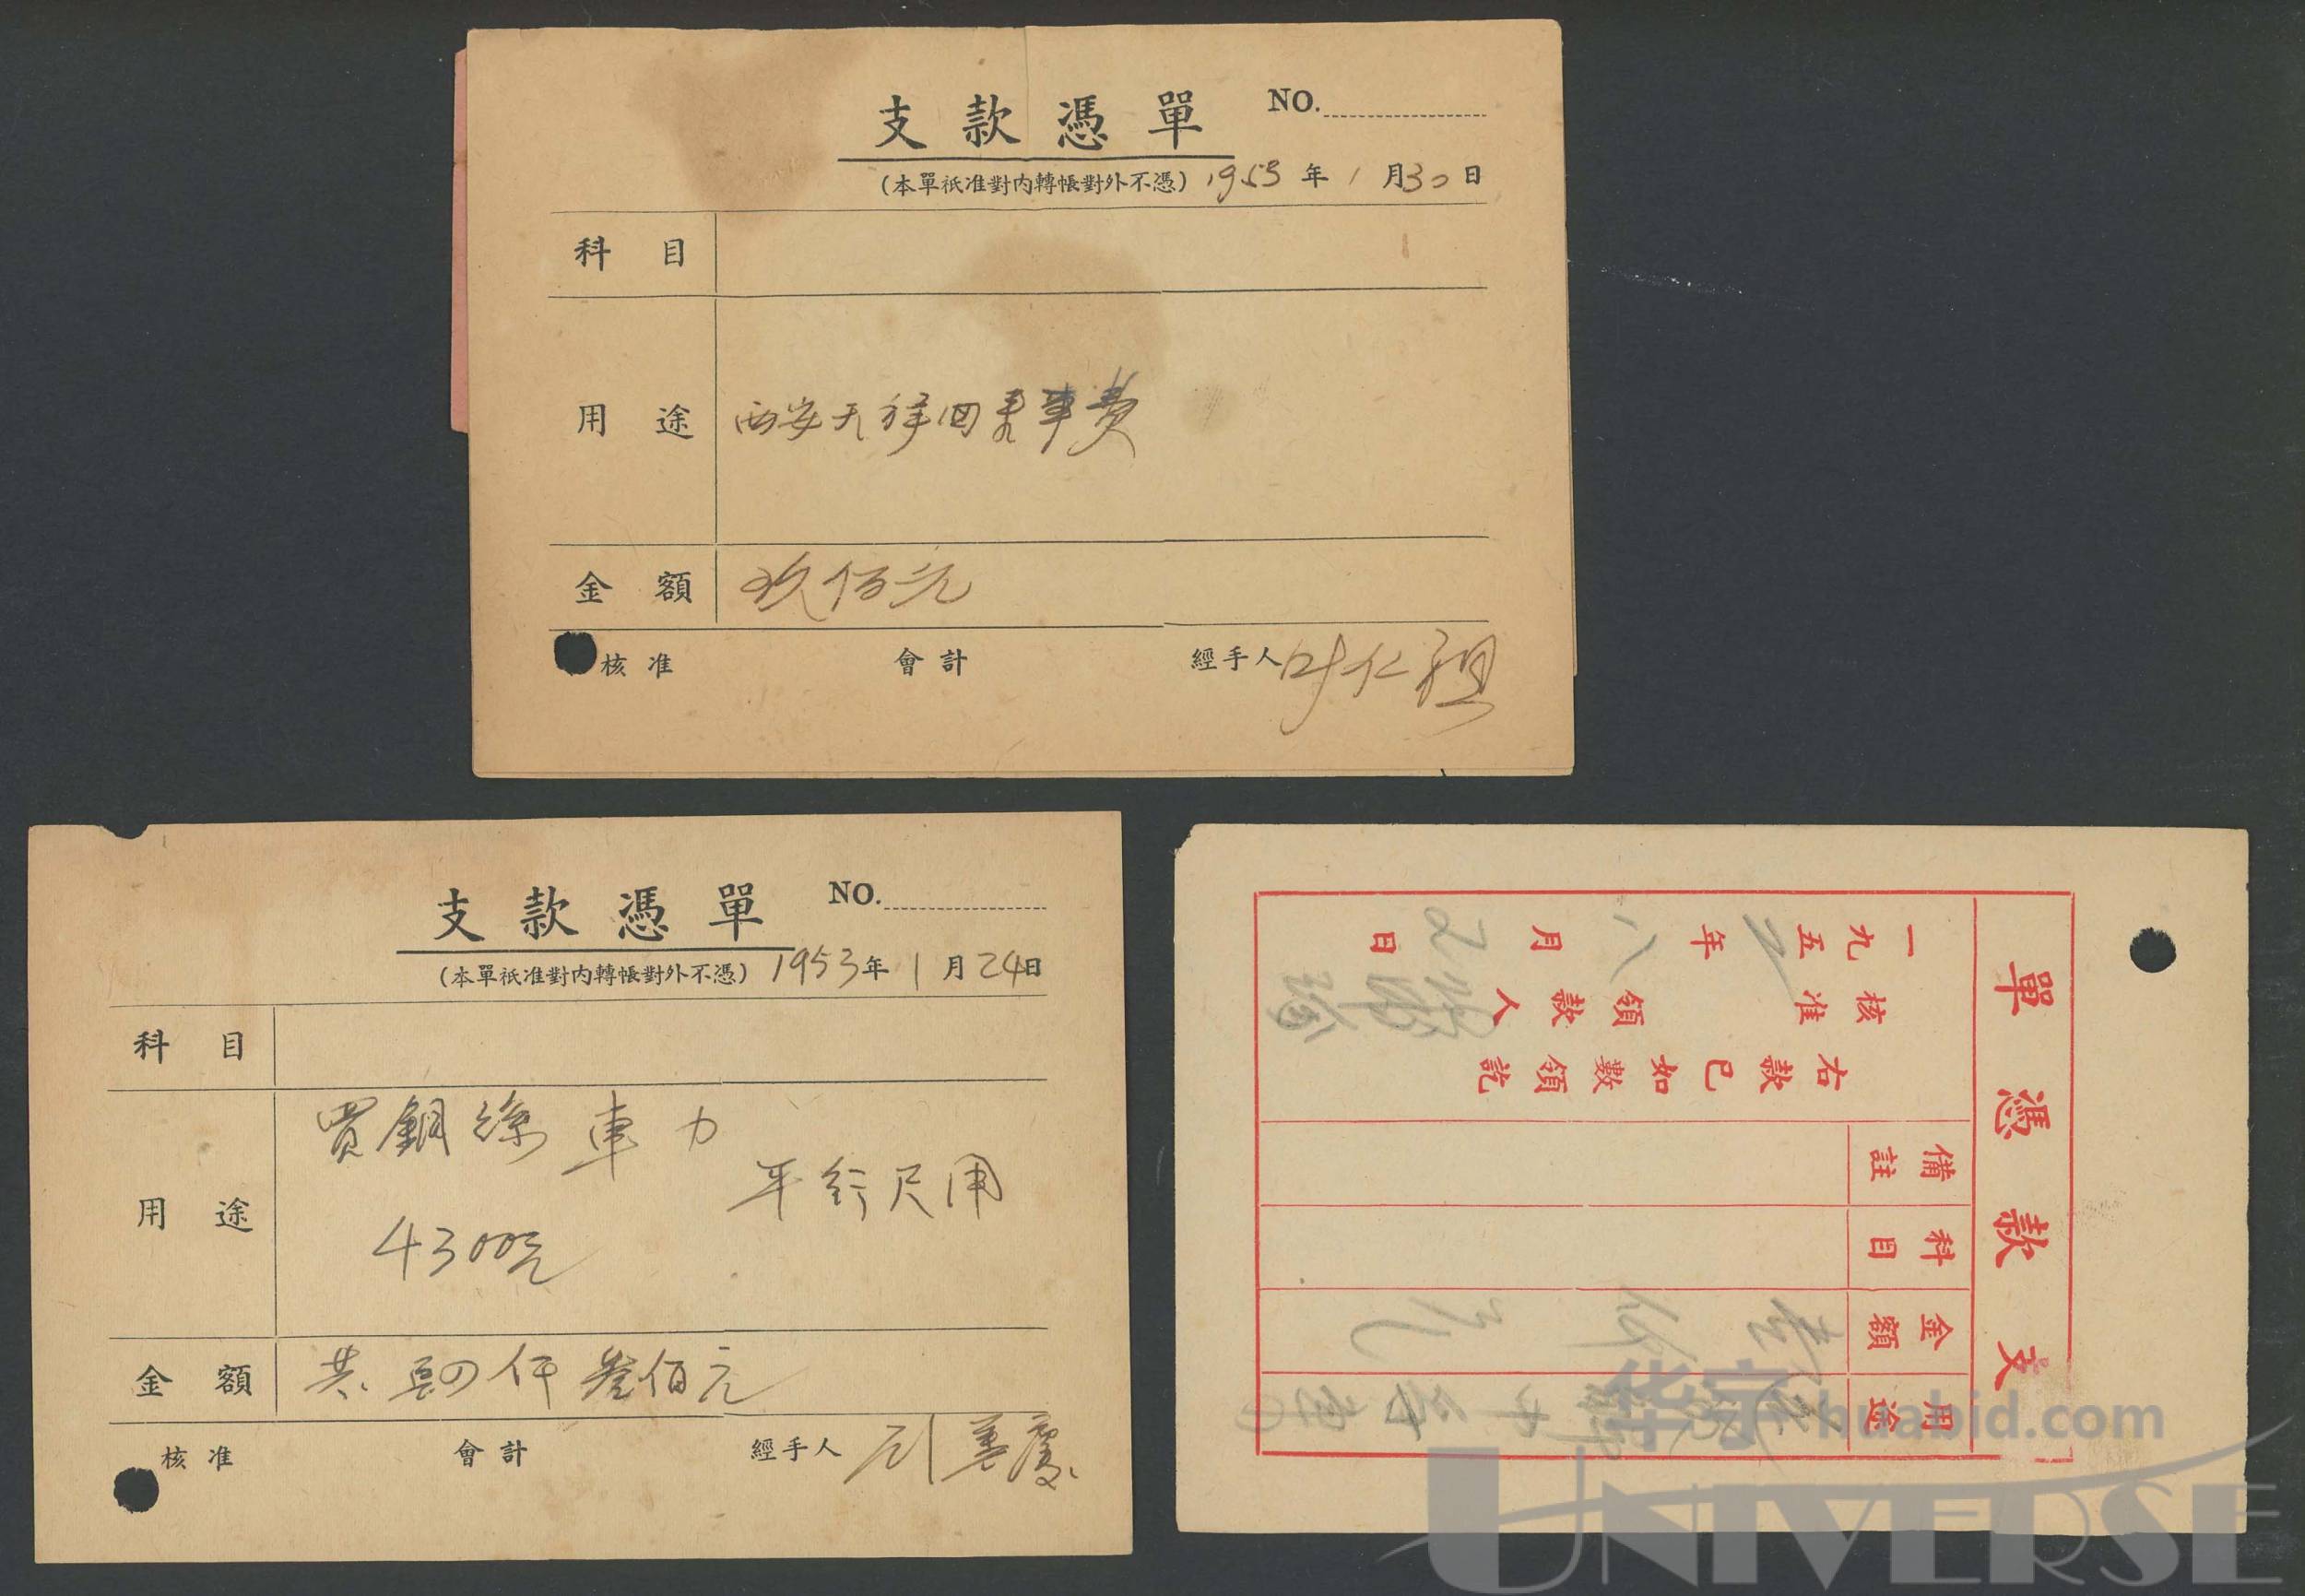 支款憑單 NO.
(本單祇准對內轉帳對外不憑) 1953年1月30日
科目
用途 西安天祥回来車費
金額 玖佰元
核准 會計 經手人 叶仁祖
支款憑單 NO.
(本單祇准對內轉帳對外不憑) 1953年1月24日
科目
用途 買銅絲車力
平行尺用
4300元
金額 共 四仟叁佰元
核准 會計 經手人 善慶
支款憑單
用途
金額
科目
備註
右款已如數領訖
核准 領款人
一九五2年八月2日
华宇 huabid.com
UNIVERSE